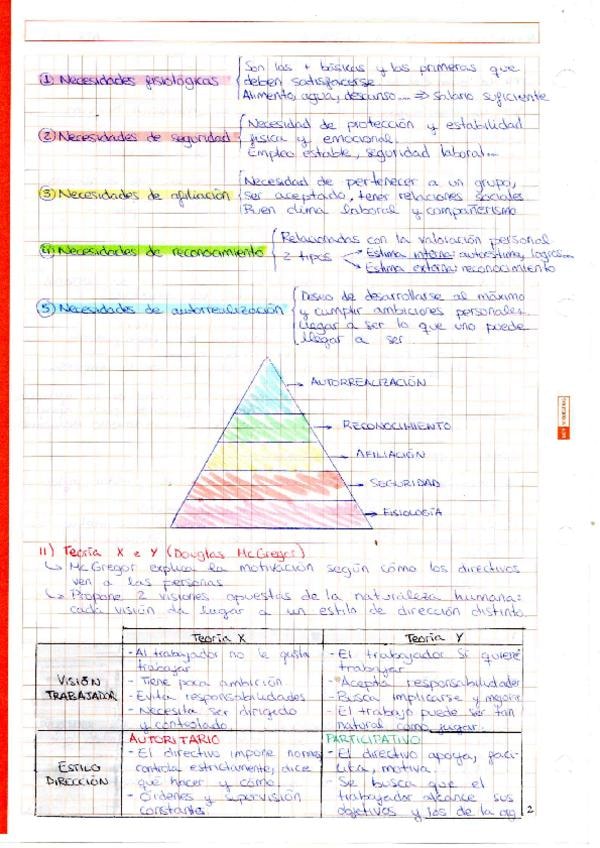 ① Necesidades fisiológicas
Son las + básicas y las primeras que
deben satisfacerse
Alimento, agua, descanso... ⇒ salario suficiente
② Necesidades de seguridad
Necesidad de protección y estabilidad
física y emocional.
Empleo estable, seguridad laboral...
③ Necesidades de afiliación
Necesidad de pertenecer a un grupo,
ser aceptado, tener relaciones sociales
Buen clima laboral y compañerismo
④ Necesidades de reconocimiento
Relacionadas con la valoración personal
2 tipos
Estima interna: autoestima, logros...
Estima externa: reconocimiento
⑤ Necesidades de autorrealización
Deseo de desarrollarse al máximo
y cumplir ambiciones personales.
Llegar a ser lo que uno puede
llegar a ser
→ AUTORREALIZACIÓN
→ RECONOCIMIENTO
→ AFILIACIÓN
→ SEGURIDAD
→ FISIOLOGÍA
11) Teoría X e Y (Douglas McGregor)
↳ McGregor explica la motivación según cómo los directivos
ven a las personas
↳ Propone 2 visiones opuestas de la naturaleza humana:
cada visión da lugar a un estilo de dirección distinto.
Teoría X
Teoría Y
VISIÓN
TRABAJADOR
- Al trabajador no le gusta
trabajar
- Tiene poca ambición
- Evita responsabilidades
- Necesita ser dirigido
y controlado.
- El trabajador sí quiere
trabajar
- Acepta responsabilidades
- Busca implicarse y mejorar
- El trabajo puede ser tan
natural como jugar.
ESTILO
DIRECCIÓN
AUTORITARIO
- El directivo impone normas,
controla estrictamente, dice
qué hacer y cómo.
- Órdenes y supervisión
constantes.
PARTICIPATIVO
- El directivo apoya, faci-
lita, motiva.
- Se busca que el
trabajador alcance sus
objetivos y los de la org
2